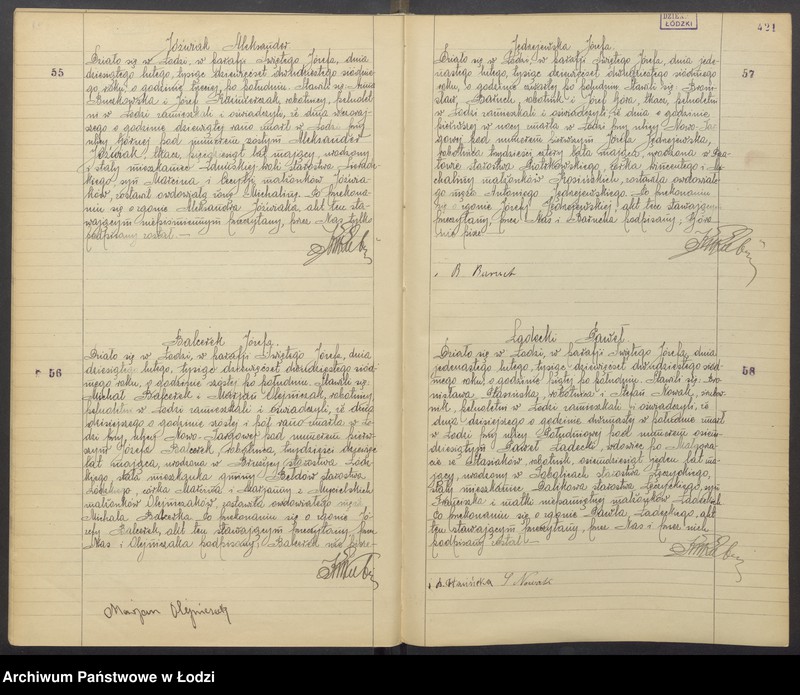 55
Jóźwiak Aleksander
Działo się w Łodzi, w parafji Świętego Józefa, dnia
dziesiątego lutego, tysiąc dziewięćset dwudziestego siódme-
go roku, o godzinie trzeciej po południu. Stawili się: Anna
i Józef robotnicy, pełnolet-
ni w Łodzi zamieszkali i oświadczyli, że dnia wczoraj-
szego o godzinie dziewiątej rano zmarł w Łodzi przy
ulicy Górnej pod numerem szóstym Aleksander
Jóźwiak, tkacz, lat mający, urodzony
i stały mieszkaniec Zduńskiej Woli starostwa Sieradz-
kiego, syn Marcina i małżonków Jóźwia-
ków, zostawił owdowiałą żonę Michalinę. Po przekona-
niu się o zgonie Aleksandra Jóźwiaka, akt ten sta-
wającym niepiśmiennym przeczytany, przez Nas tylko
podpisany został.
56
Balcerek Józefa.
Działo się w Łodzi, w parafji Świętego Józefa, dnia
dziesiątego lutego, tysiąc dziewięćset dwudziestego siód-
mego roku, o godzinie szóstej po południu. Stawili się:
Michał Balcerek i Marjan Olejniczak, robotnicy,
pełnoletni w Łodzi zamieszkali i oświadczyli, że dnia
dzisiejszego o godzinie szóstej i pół rano zmarła w Ło-
dzi przy ulicy Nowo-Targowej pod numerem pierw-
szym Józefa Balcerek, robotnica, trzydzieści dziewięć
lat mająca, urodzona w starostwa Łódz-
kiego, stała mieszkanka gminy Bełdów starostwa
Łódzkiego, córka i Marjanny z
małżonków Olejniczaków, zostawiła owdowiałego męża
Michała Balcerka. Po przekonaniu się o zgonie Jó-
zefy Balcerek, akt ten stawającym przeczytany, przez
Nas i Olejniczaka podpisany; Balcerek nie pisze.
Marjan Olejniczak
DZIEL. ŁÓDZKI
421
57
Jędrzejewska Józefa.
Działo się w Łodzi, w parafji Świętego Józefa, dnia jede-
nastego lutego, tysiąc dziewięćset dwudziestego siódmego
roku, o godzinie czwartej po południu. Stawili się: Broni-
sław Baruch, robotnik i Józef Góra, tkacz, pełnoletni
w Łodzi zamieszkali i oświadczyli, że dnia o godzinie
pierwszej w nocy zmarła w Łodzi przy ulicy Nowo-Tar-
gowej pod numerem pierwszym Józefa Jędrzejewska,
robotnica, trzydzieści cztery lata mająca, urodzona w
starostwa Piotrkowskiego, córka Wincentego i Mi-
chaliny małżonków zostawiła owdowiałe-
go męża Antoniego Jędrzejewskiego. Po przekonaniu
się o zgonie Józefy Jędrzejewskiej, akt ten stawającym
przeczytany, przez Nas i Barucha podpisany; Góra
nie pisze.
B. Baruch
58
Ladecki Paweł
Działo się w Łodzi, w parafji Świętego Józefa, dnia
jedenastego lutego, tysiąc dziewięćset dwudziestego siód-
mego roku, o godzinie piątej po południu. Stawili się: Bro-
nisława Stasińska, robotnica i Stefan Nowak,
pełnoletni w Łodzi zamieszkali i oświadczyli, że
dnia dzisiejszego o godzinie dwunastej w południe zmarł
w Łodzi przy ulicy Południowej pod numerem osiem-
dziesiątym Paweł Ladecki, wdowiec po Małgorza-
cie ze Stasiaków, robotnik, osiemdziesiąt jeden lat ma-
jący, urodzony w starostwa Łęczyckiego,
stały mieszkaniec starostwa Łęczyckiego, syn
Franciszka i matki niepamiętnej małżonków Ladeckich.
Po przekonaniu się o zgonie Pawła Ladeckiego, akt
ten stawającym przeczytany, przez Nas i przez nich
podpisany został.
B. Stasińska S Nowak
Archiwum Państwowe w Łodzi